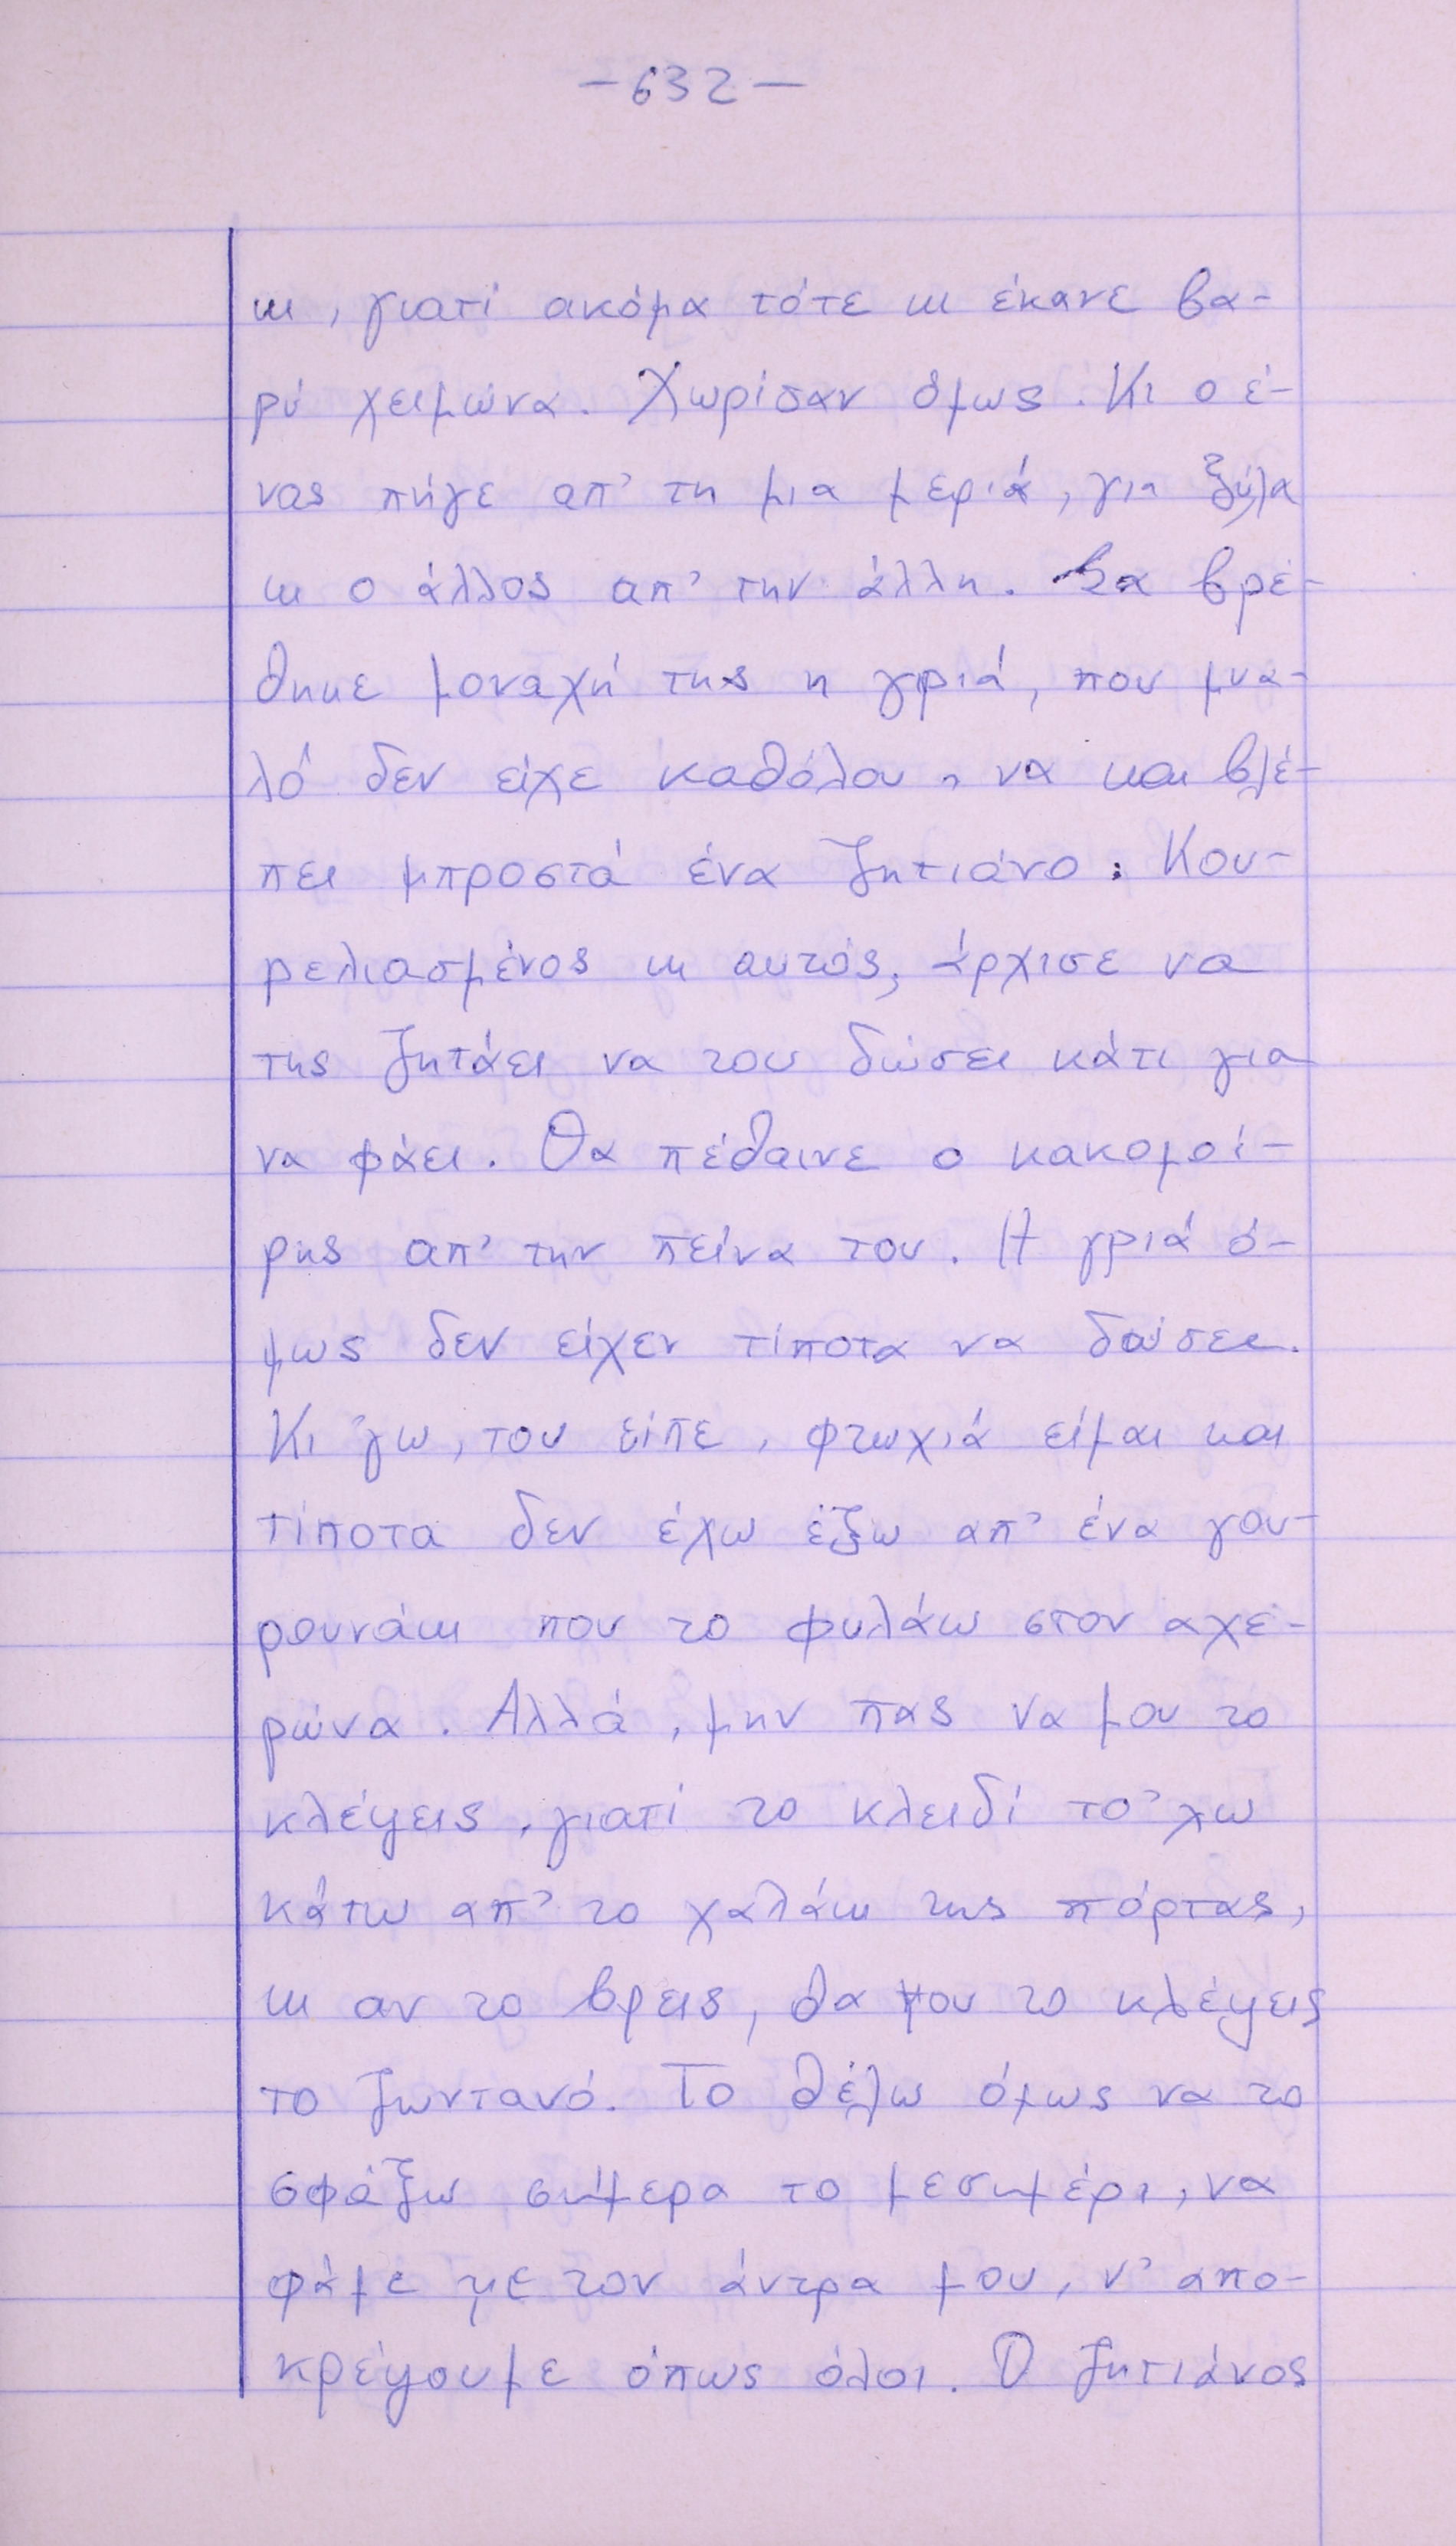 -632-
κι, γιατί ακόμα τότε κι έκανε βα-
ρύ χειμώνα. Χωρίσαν όμως. Κι ο έ-
νας πήγε απ' τη μια μεριά, για ξύλα
κι ο άλλος απ' την άλλη. Σα βρέ-
θηκε μοναχή της η γριά, που μυα-
λό δεν είχε καθόλου, να και βλέ-
πει μπροστά ένα ζητιάνο. Κου-
ρελιασμένος κι αυτός, άρχισε να
της ζητάει να του δώσει κάτι για
να φάει. Θα πέθαινε ο κακομοί-
ρης απ' την πείνα του. Η γριά ό-
μως δεν είχεν τίποτα να δώσει.
Κι 'γω, του είπε, φτωχιά είμαι και
τίποτα δεν έχω έξω απ' ένα γου-
ρουνάκι που το φυλάω στον αχε-
ρώνα. Αλλά, μην πας να μου το
κλέψεις, γιατί το κλειδί το 'χω
κάτω απ' το χαλάκι της πόρτας,
κι αν το βρεις, θα μου το κλέψεις
το ζωντανό. Το θέλω όμως να το
σφάξω σήμερα το μεσημέρι, να
φάμε με τον άντρα μου, ν' απο-
κρέψουμε όπως όλοι. Ο ζητιάνος